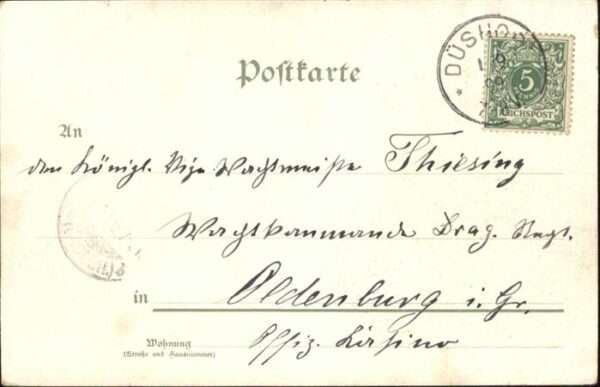 Postkarte
DÜSHO
5
REICHSPOST
An
den Königl. Vize Wachtmeister Thiesing
Wachtkommando Drag. Regt.
in Oldenburg i. Gr.
Offiz. Kasino
Wohnung
(Straße und Hausnummer)